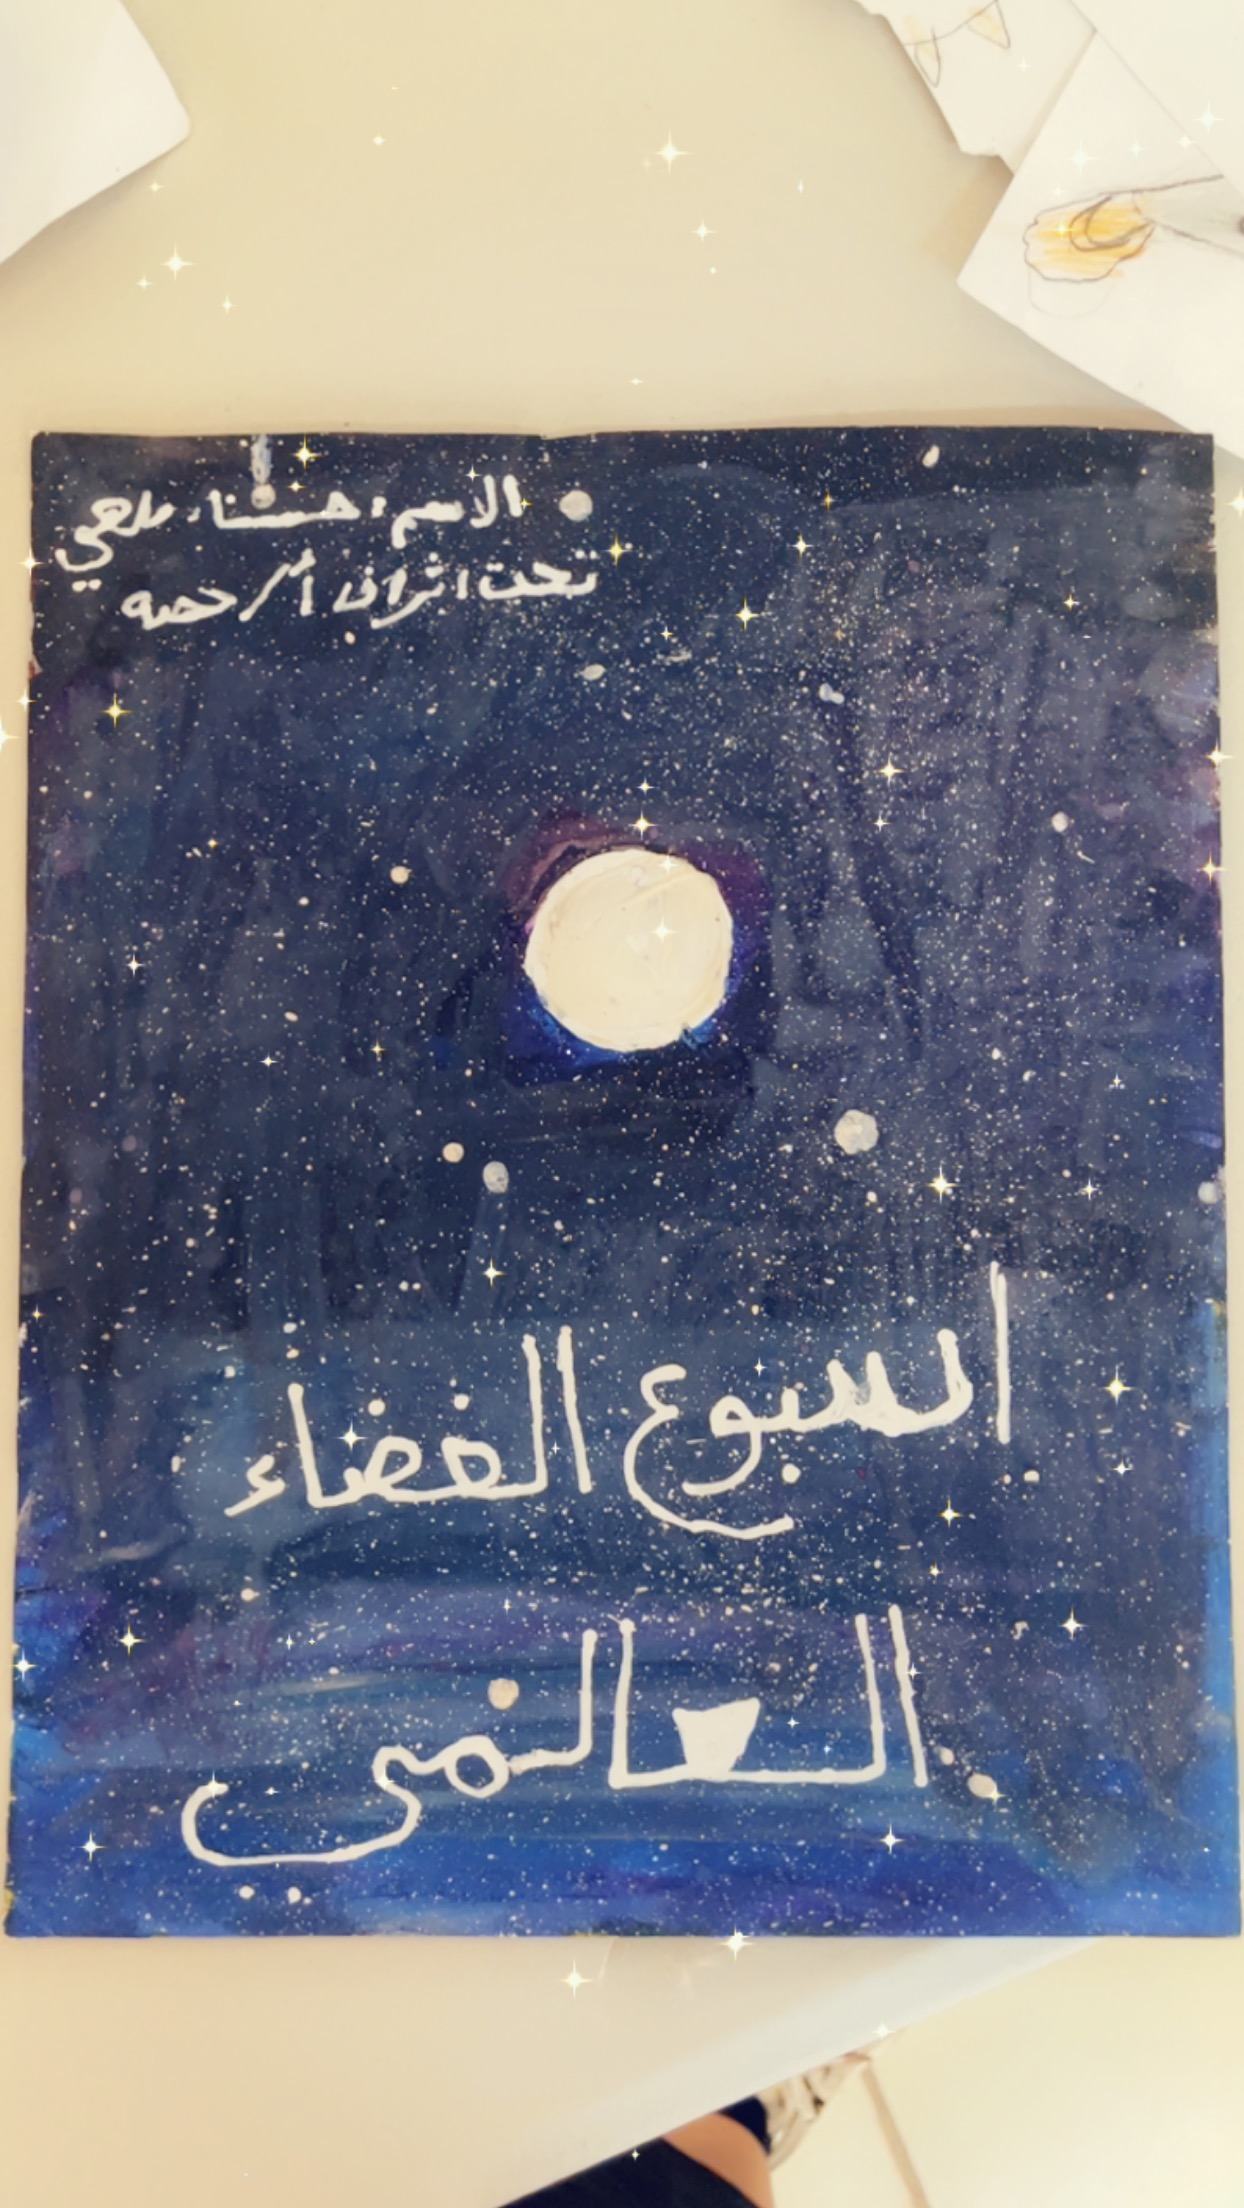 الاسم: حسناء ملهي
تحت اشراف أ/رحمه
اسبوع الفضاء
العالمي